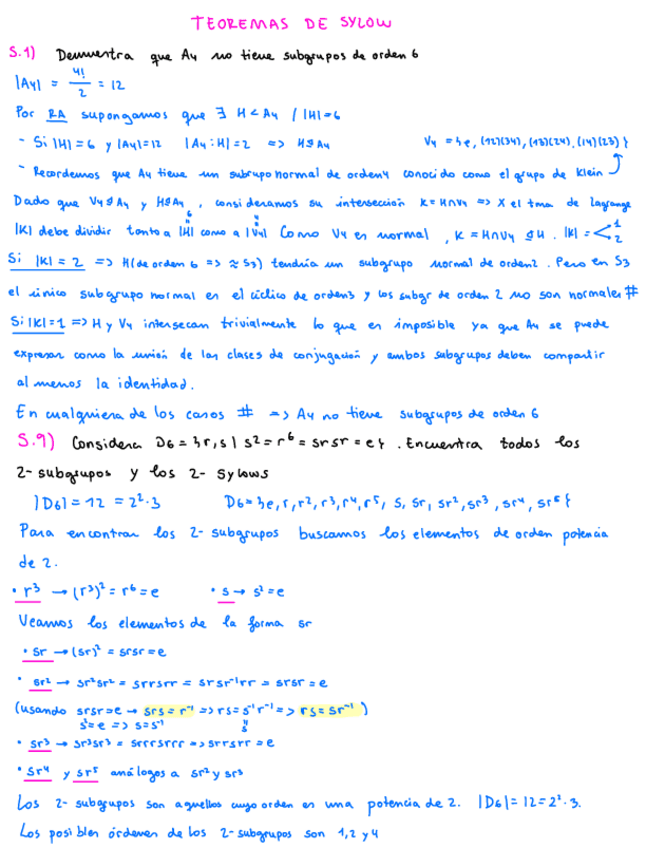 TEOREMAS DE SYLOW
5.1) Demuestra que A4 no tiene subgrupos de orden 6
|A4| = 4!/2 = 12
Por RA supongamos que ∃ H < A4 / |H|=6
- Si |H|=6 y |A4|=12 |A4:H|=2 => H⊴A4 V4 = {e, (12)(34), (13)(24), (14)(23)}
- Recordemos que A4 tiene un subrupo normal de orden 4 conocido como el grupo de Klein
Dado que V4⊴A4 y H⊴A4, consideramos su intersección K = H∩V4 => X el tma de Lagrange
|K| debe dividir tanto a |H| como a |V4| Como V4 es normal, K = H∩V4 ⊴ H. |K| = < 1 2
6 4
Si |K| = 2 => H (de orden 6 => ≈ S3) tendría un subgrupo normal de orden 2. Pero en S3
el único subgrupo normal es el cíclico de orden 3 y los subgr de orden 2 no son normales #
Si |K|=1 => H y V4 intersecan trivialmente lo que es imposible ya que A4 se puede
expresar como la unión de las clases de conjugación y ambos subgrupos deben compartir
al menos la identidad.
En cualquiera de los casos # => A4 no tiene subgrupos de orden 6
5.9) Considera D6 = {r,s | s² = r⁶ = srsr = e}. Encuentra todos los
2-subgrupos y los 2-Sylows
|D6| = 12 = 2²·3 D6 = {e, r, r², r³, r⁴, r⁵, s, sr, sr², sr³, sr⁴, sr⁵}
Para encontrar los 2-subgrupos buscamos los elementos de orden potencia
de 2.
• r³ → (r³)² = r⁶ = e • s → s² = e
Veamos los elementos de la forma sr
• sr → (sr)² = srsr = e
• sr² → sr²sr² = srrsrr = srsr⁻¹rr = srsr = e
(usando srsr=e → srs = r⁻¹ => rs = s⁻¹r⁻¹ => rs = sr⁻¹)
s²=e => s=s⁻¹ s
• sr³ → sr³sr³ = srrrsrrr => srrsrr = e
• sr⁴ y sr⁵ análogos a sr² y sr³
Los 2-subgrupos son aquellos cuyo orden es una potencia de 2. |D6| = 12 = 2²·3.
Los posibles órdenes de los 2-subgrupos son 1, 2 y 4